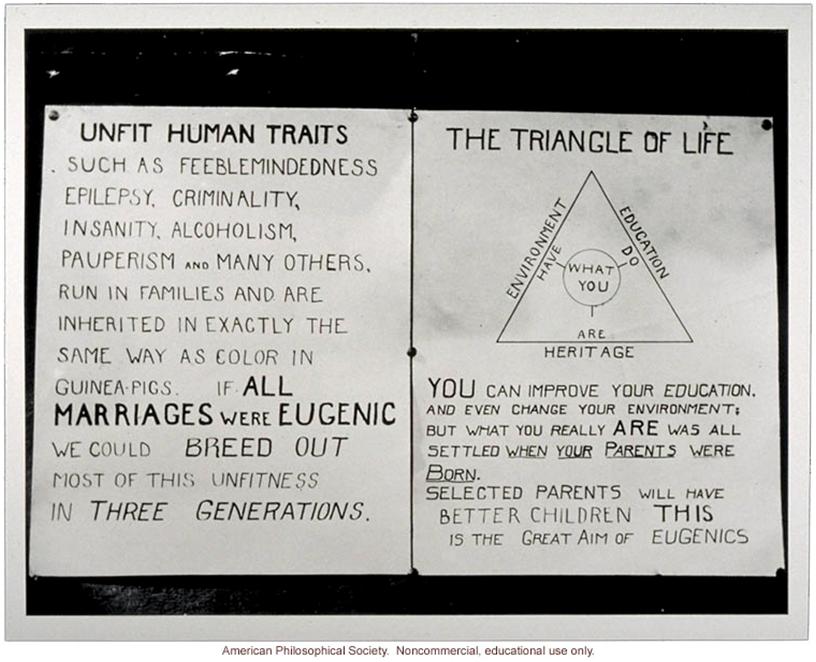 UNFIT HUMAN TRAITS
SUCH AS FEEBLEMINDEDNESS
EPILEPSY, CRIMINALITY,
INSANITY, ALCOHOLISM,
PAUPERISM AND MANY OTHERS,
RUN IN FAMILIES AND ARE
INHERITED IN EXACTLY THE
SAME WAY AS COLOR IN
GUINEA-PIGS. IF ALL
MARRIAGES WERE EUGENIC
WE COULD BREED OUT
MOST OF THIS UNFITNESS
IN THREE GENERATIONS.
THE TRIANGLE OF LIFE
ENVIRONMENT
HAVE
EDUCATION
DO
WHAT
YOU
ARE
HERITAGE
YOU CAN IMPROVE YOUR EDUCATION,
AND EVEN CHANGE YOUR ENVIRONMENT;
BUT WHAT YOU REALLY ARE WAS ALL
SETTLED WHEN YOUR PARENTS WERE
BORN.
SELECTED PARENTS WILL HAVE
BETTER CHILDREN THIS
IS THE GREAT AIM OF EUGENICS
American Philosophical Society. Noncommercial, educational use only.